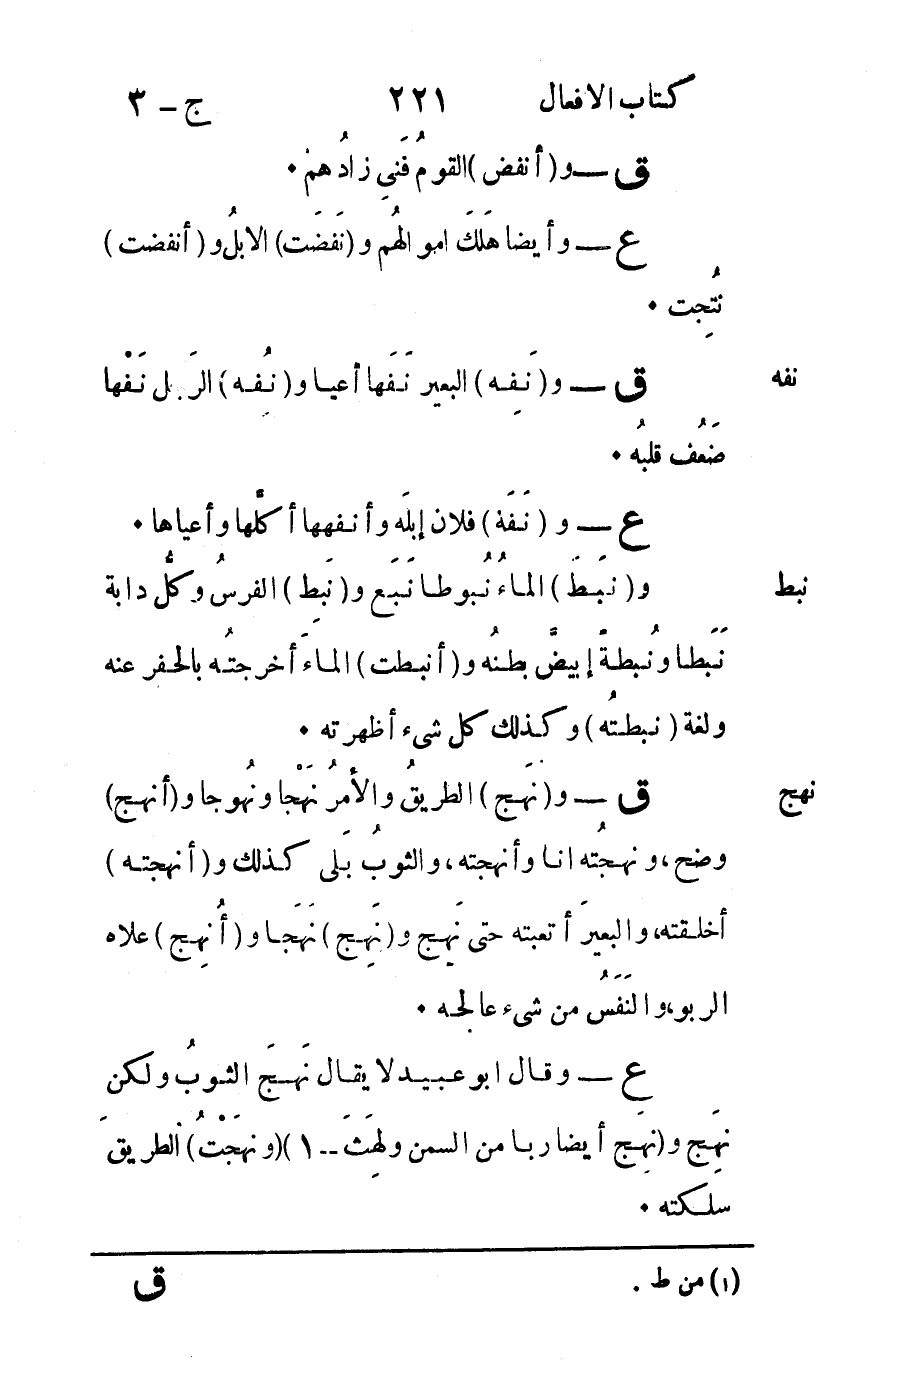 كتاب الافعال ٢٢١ ج – ٣
ق – و (أنفض) القومُ فَنِيَ زادُهمْ ٠
ع – وأيضا هَلَكَ اموالهُم و (نَفَضَت) الابلُ و (أنفضت)
نُتِجت ٠
نفه ق – و (نَفِه) البعير نَفَها أعيا و (نُفِه) الرجل نَفْها
ضَعُف قلبُه ٠
ع – و (نَفَهَ) فلان إبلَه وأنفهها أكلَّها وأعياها ٠
نبط و (نَبَطَ) الماءُ نُبوطا نَبَع و (نَبِط) الفرسُ وكلُّ دابة
نَبَطا ونُبطةً إبيضَّ بطنُه و (أنبطت) الماءَ أخرجتُه بالحفر عنه
ولغة (نبطتُه) وكذلك كل شىء أظهرته ٠
نهج ق – و (نَهَج) الطريقُ والأمرُ نَهْجا ونُهوجا و (أنهج)
وضح، ونهجتُه انا وأنهجته، والثوبُ بَلَى كذلك و (أنهجته)
أخلقته، والبعيرَ أتعبته حتى نَهِج و (نَهِج) نَهَجا و (أُنهِج) علاه
الربو، والنَفَسُ من شىء عالجه ٠
ع – وقال ابو عبيد لا يقال نَهَجَ الثوبُ ولكن
نَهِج و (نَهِج أيضا ربا من السمن ولهَثَ – ١) (ونهَجْتُ) الطريقَ
سلكته ٠
(١) من ط .
ق